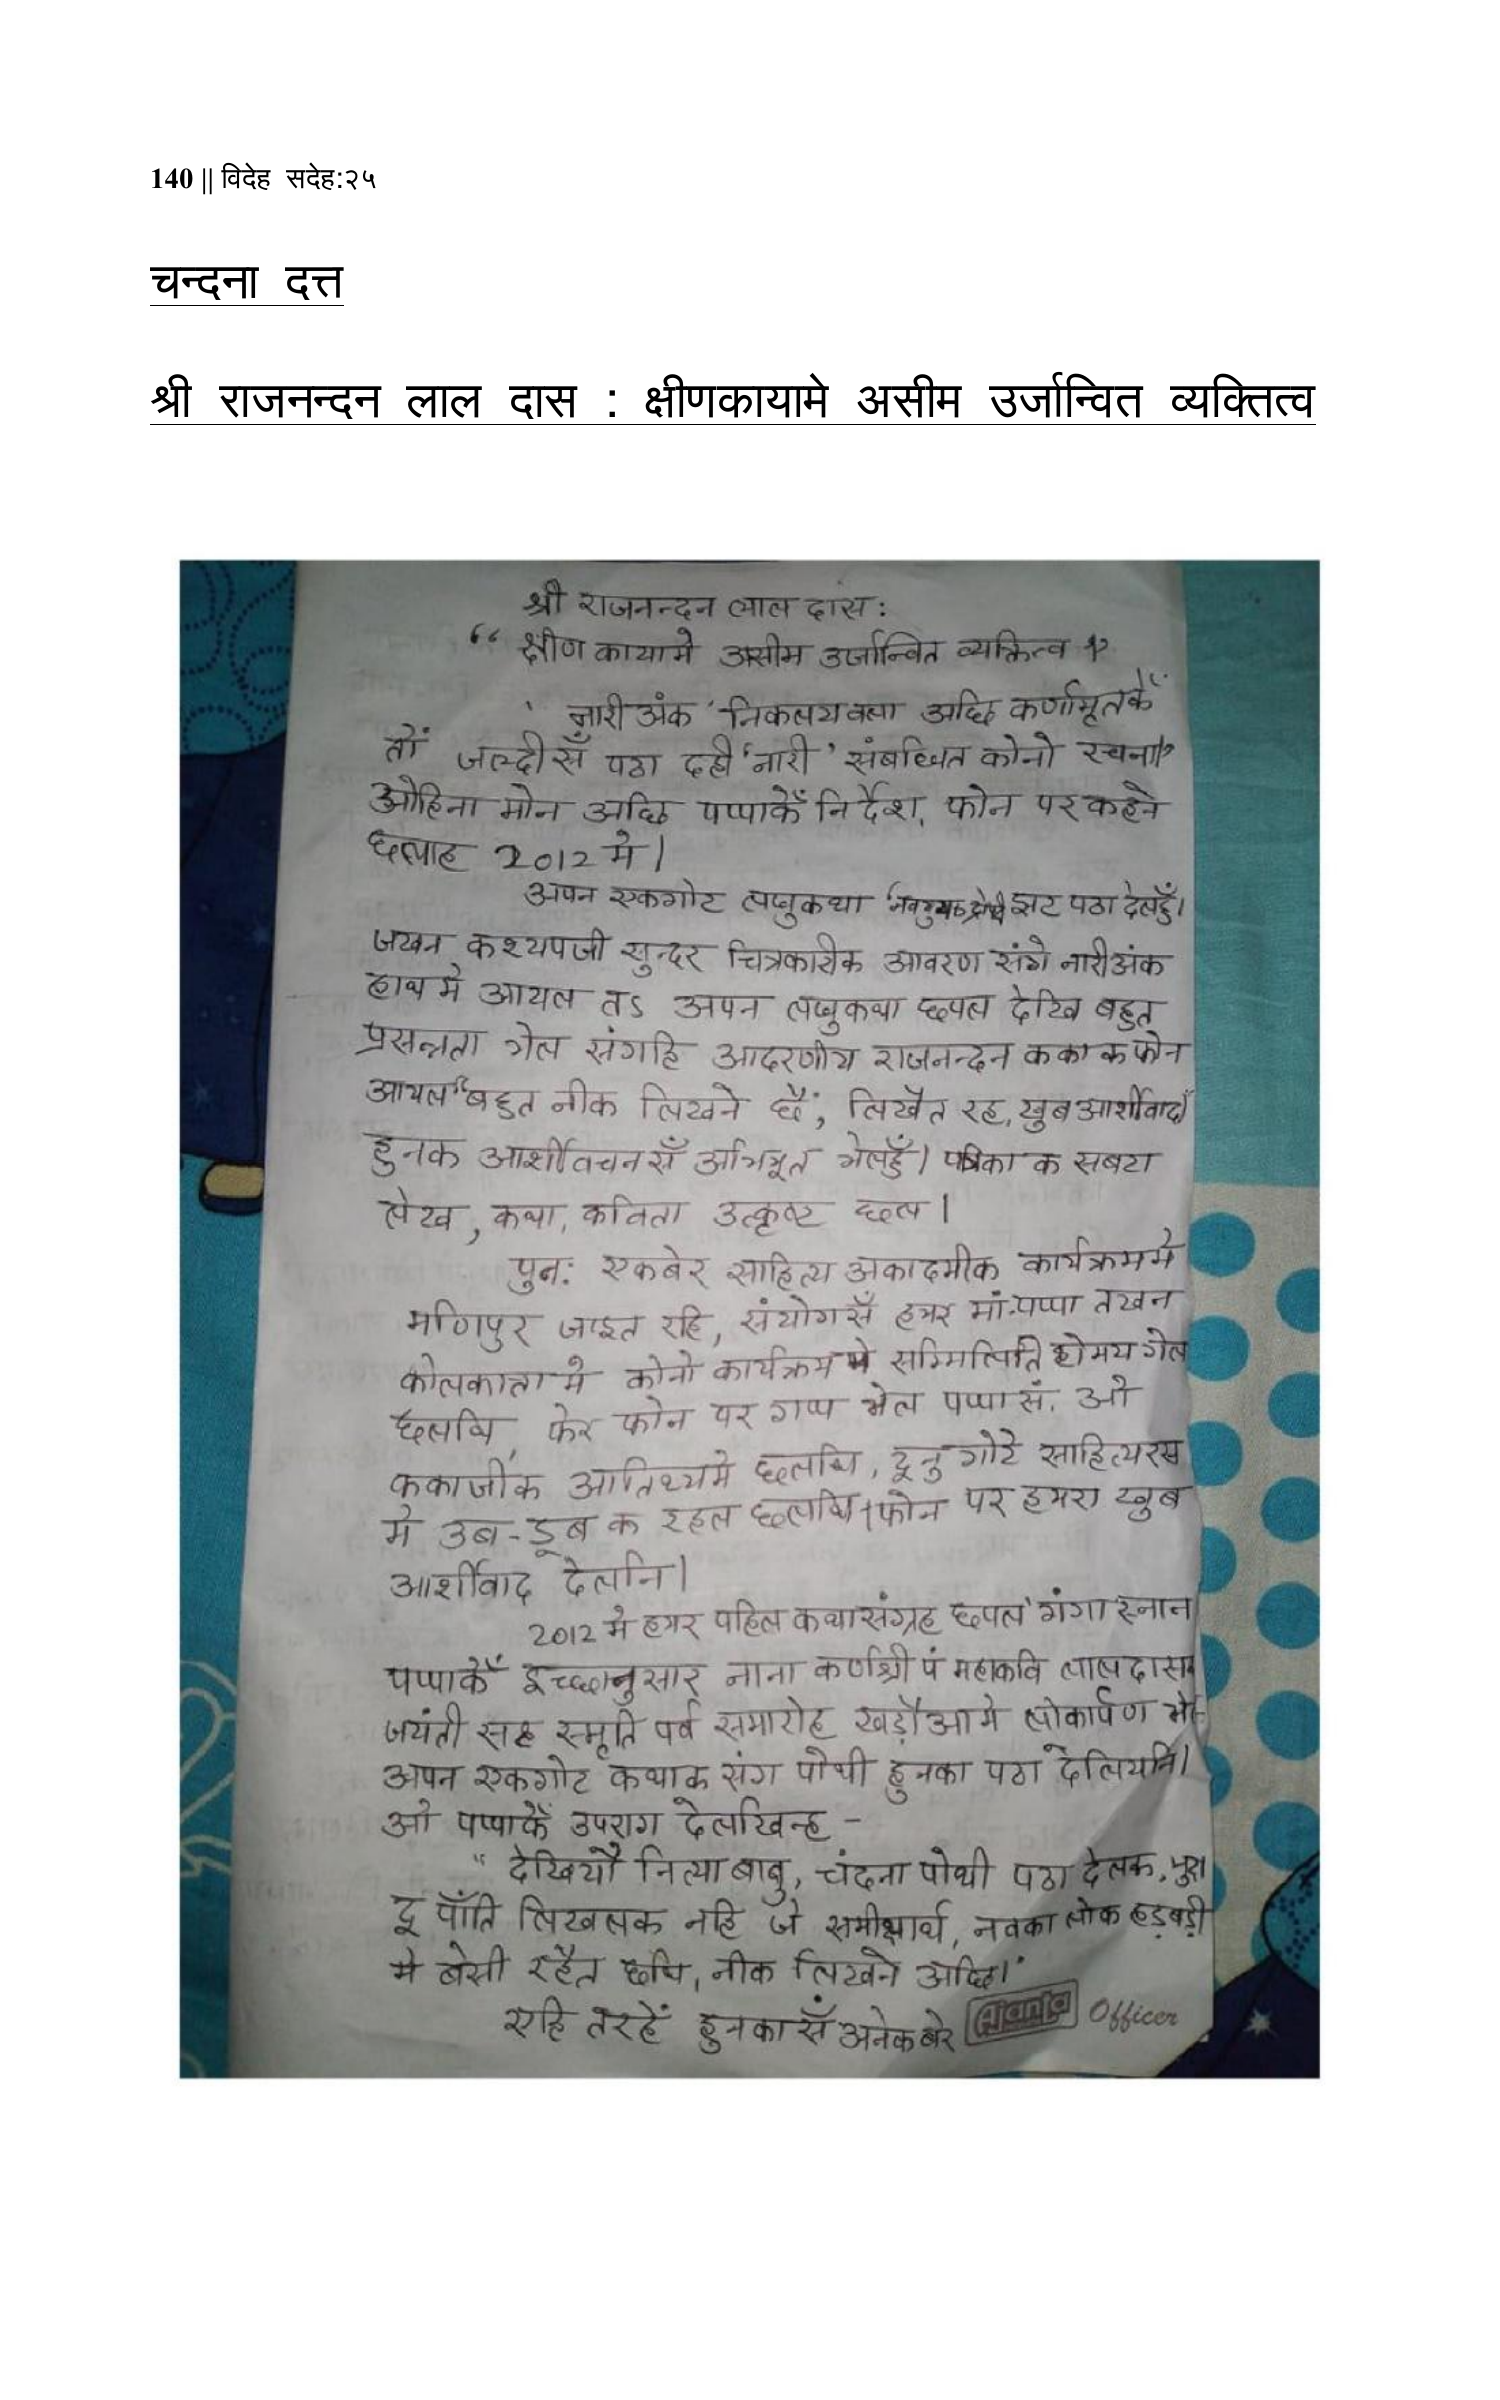 140 || विदेह सदेह:२५
चन्दना दत्त
श्री राजनन्दन लाल दास : क्षीणकायामे असीम उर्जान्वित व्यक्तित्व
श्री राजनन्दन लाल दास :
“ क्षीण कायामे असीम उर्जान्वित व्यक्तित्व "
' नारी अंक ' निकलयवला अछि कर्णामृतकेँ
तोँ जल्दीसँ पठा दही 'नारी ' संबंधित कोनो रचना"
ओहिना मोन अछि पप्पाकेँ निर्देश, फोन पर कहने
छलाह 2012 मे।
अपन एकगोट लघुकथा झट पठा देलहुँ।
जखन कश्यपजी सुन्दर चित्रकारीक आवरण संगे नारी अंक
हाथ मे आयल तऽ अपन लघुकथा छपल देखि बहुत
प्रसन्नता भेल संगहि आदरणीय राजनन्दन कका क फोन
आयल "बहुत नीक लिखने छैं, लिखैत रह, खुब आर्शीवाद"
हुनक आर्शीवचनसँ अभिभूत भेलहुँ। पत्रिका क सबटा
लेख, कथा, कविता उत्कृष्ट छल।
पुन: एकबेर साहित्य अकादमीक कार्यक्रममे
मणिपुर जाइत रहि, संयोगसँ हमर माँ-पप्पा तखन
कोलकात्ता मे कोनो कार्यक्रम मे सम्मिलिति होमय गेल
छलथि, फेर फोन पर गप्प भेल पप्पा सं. ओ
ककाजीक आतिथ्यमे छलथि, दूनु गोटे साहित्यरस
मे उब-डूब क रहल छलथि। फोन पर हमरा खुब
आर्शीवाद देलनि।
2012 मे हमर पहिल कथासंग्रह छपल 'गंगा स्नान
पप्पाकेँ इच्छानुसार नाना कर्णश्री पं महाकवि लालदासक
जयंती सह स्मृति पर्व समारोह खड़ौआ मे लोकार्पण
अपन एकगोट कथाक संग पोथी हुनका पठा देलियनि।
ओ पप्पाकेँ उपराग देलखिन्ह -
" देखियौ नित्या बाबु, चंदना पोथी पठा देलक,
दू पाँति लिखलक नहि जे समीक्षार्थ, नवका लोक हड़बड़ी
मे बेसी रहैत छथि, नीक लिखने अछि।"
एहि तरहेँ हुनकासँ अनेक बेर
Ajanta Officer